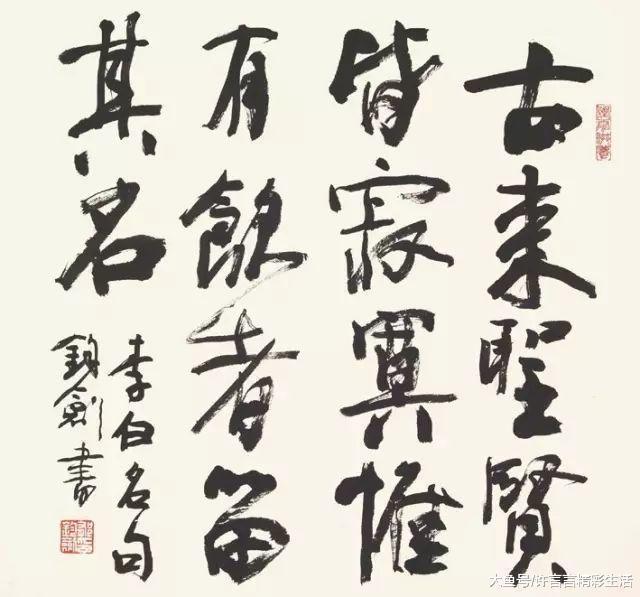 古来聖賢
皆寂寞惟
有飲者留
其名
李白名句
鈞劍書
大鱼号/许言言精彩生活